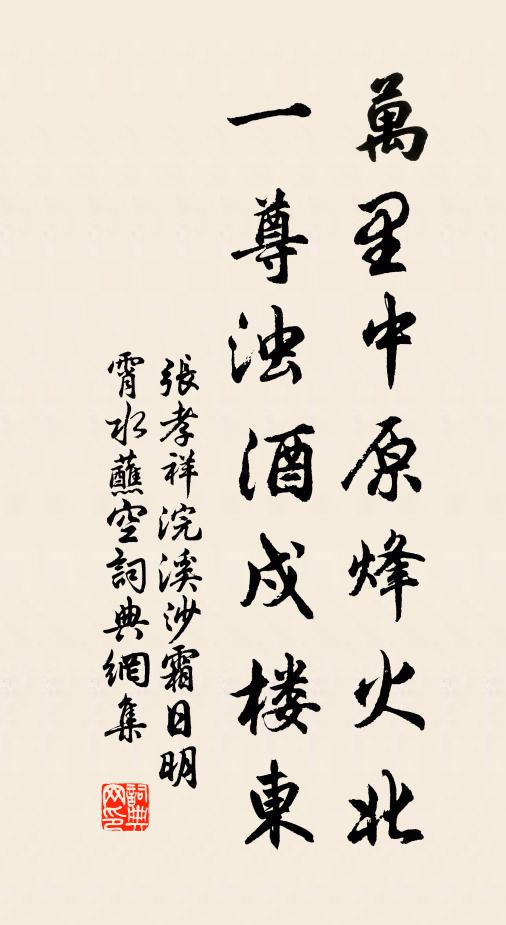 萬里中原烽火北
一尊浊酒戍楼東
張孝祥浣溪沙霜日明
霄水蘸空詞典網集
詞典
网印